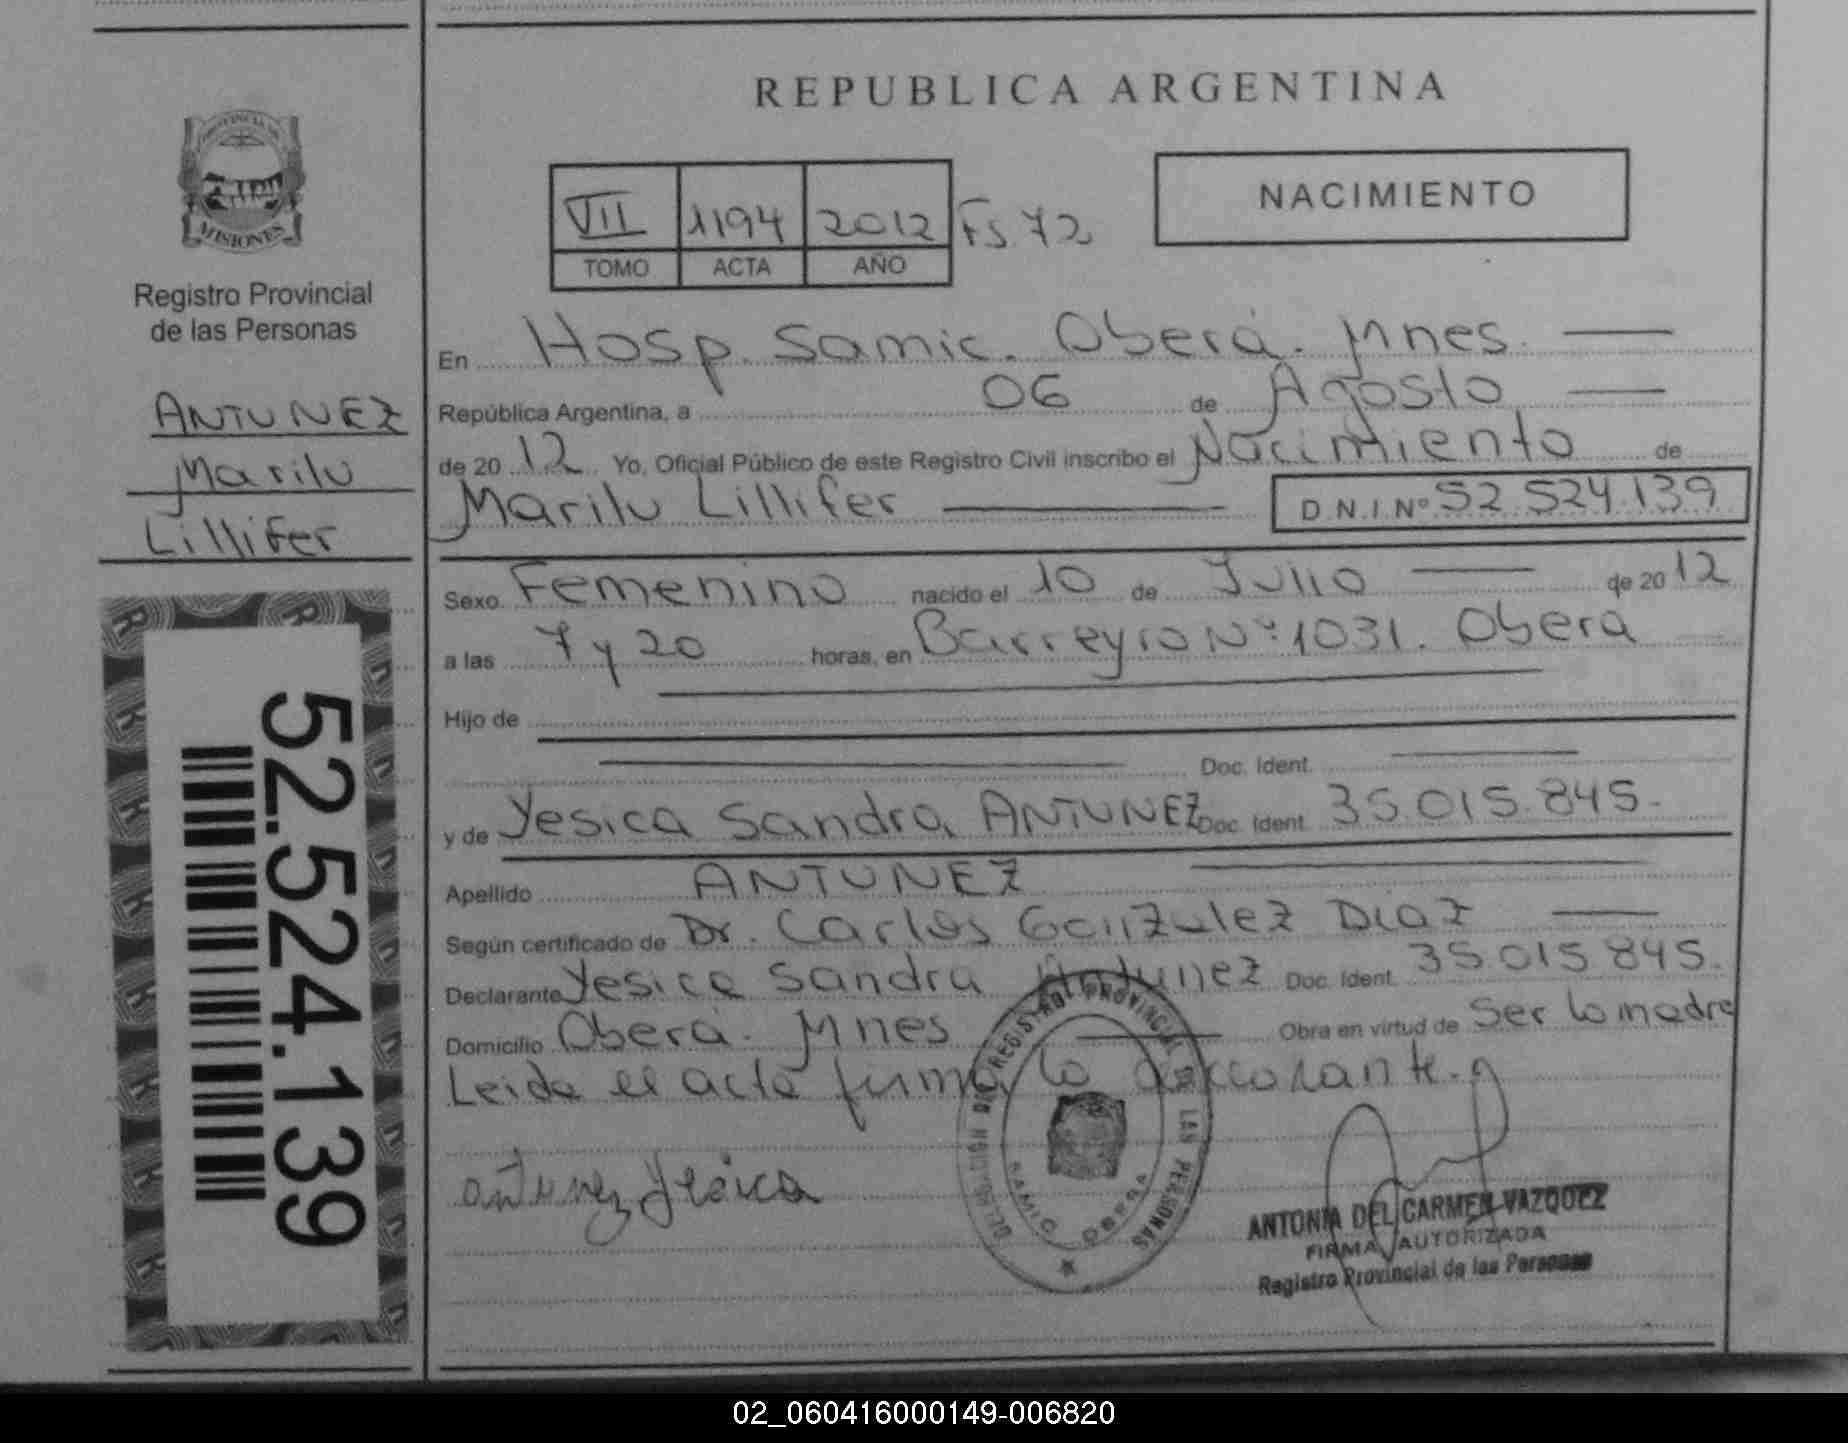 REPUBLICA ARGENTINA
PROVINCIA DE
MISIONES
Registro Provincial
de las Personas
ANTUNEZ
Marilu
Lillifer
52.524.139
VII 1194 2012 Fs 72
TOMO ACTA AÑO
NACIMIENTO
En Hosp. Samic. Oberá. Mnes.
República Argentina, a 06 de Agosto
de 20 12 Yo, Oficial Público de este Registro Civil inscribo el Nacimiento de
Marilu Lillifer D.N.I.Nº 52 524.139
Sexo Femenino nacido el 10 de Julio de 20 12
a las 7 y 20 horas, en Barreyro Nº 1031. Oberá
Hijo de
Doc. Ident.
y de Yesica Sandra ANTUNEZ Doc. Ident. 35.015.845.
Apellido ANTUNEZ
Según certificado de Dr. Carlos Gonzalez Diaz
Declarante Yesica Sandra Antunez Doc. Ident. 35 015 845.
Domicilio Oberá. Mnes Obra en virtud de Ser la madre
Leida el acta firma la declarante.
antunez Yesica
DELEGACION DEL REGISTRO PROVINCIAL DE LAS PERSONAS
SAMIC OBERA
ANTONIA DEL CARMEN VAZQUEZ
FIRMA AUTORIZADA
Registro Provincial de las Personas
02_060416000149-006820